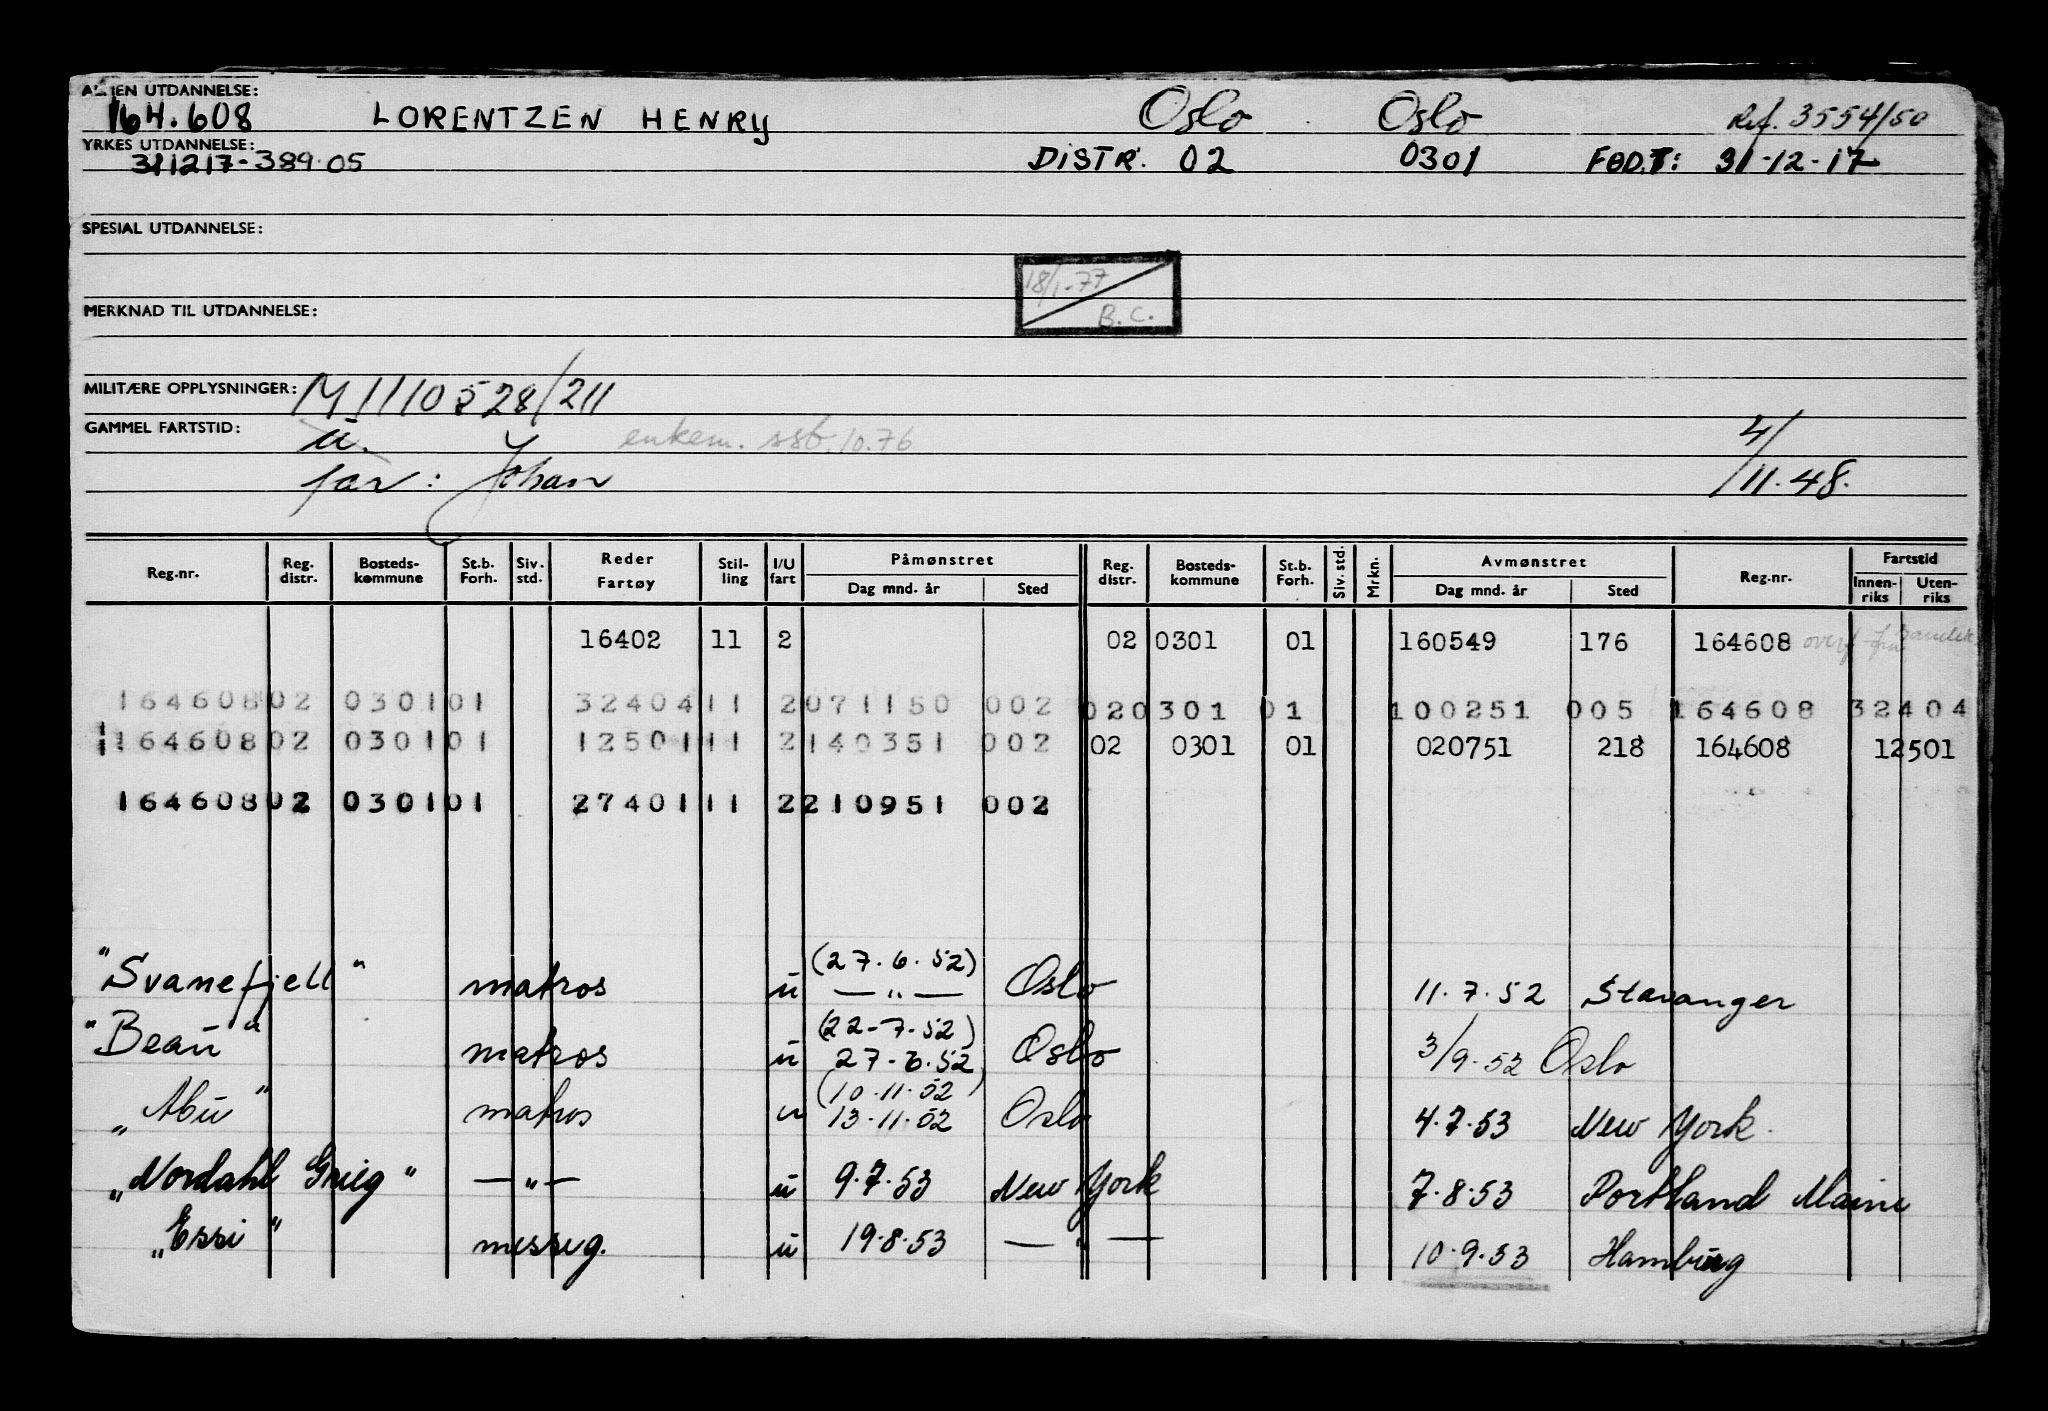 ALMEN UTDANNELSE:
164.608 LORENTZEN HENRY Oslo Oslo Ref. 3554/50
YRKES UTDANNELSE:
311217-389.05 DISTR. 02 0301 FØDT: 31-12-17
SPESIAL UTDANNELSE:
18/1-77
B.C.
MERKNAD TIL UTDANNELSE:
MILITÆRE OPPLYSNINGER: M 1110528/211
GAMMEL FARTSTID: u. enkem. ssb. 10.76 4/
far: Johan 11.48.
Reg.nr. Reg. distr. Bosteds-kommune St.b. Forh. Siv. std. Reder Fartøy Stil-ling I/U fart Påmønstret Dag mnd. år Sted Reg. distr. Bosteds-kommune St.b. Forh. Siv. std. Mrkn. Avmønstret Dag mnd. år Sted Reg.nr. Fartstid Innen-riks Uten-riks
16402 11 2 02 0301 01 160549 176 164608 overf. fra
164608 02 0301 01 32404 11 2 071150 002 02 0301 01 100251 005 164608 32404
164608 02 0301 01 12501 11 2 140351 002 02 0301 01 020751 218 164608 12501
164608 02 0301 01 27401 11 2 210951 002
"Svanefjell" matros u (27.6.52) — " — Oslo 11.7.52 Stavanger
"Beau" matros u (22-7-52) 27-6.52 Oslo 3/9.52 Oslo
"Abu" matros u (10.11.52) 13.11.52 Oslo 4.7.53 New York.
"Nordahl Grieg" — " — u 9.7.53 New York 7.8.53 Portland Maine
"Essi" messeg. u 19.8.53 — " — 10.9.53 Hamburg